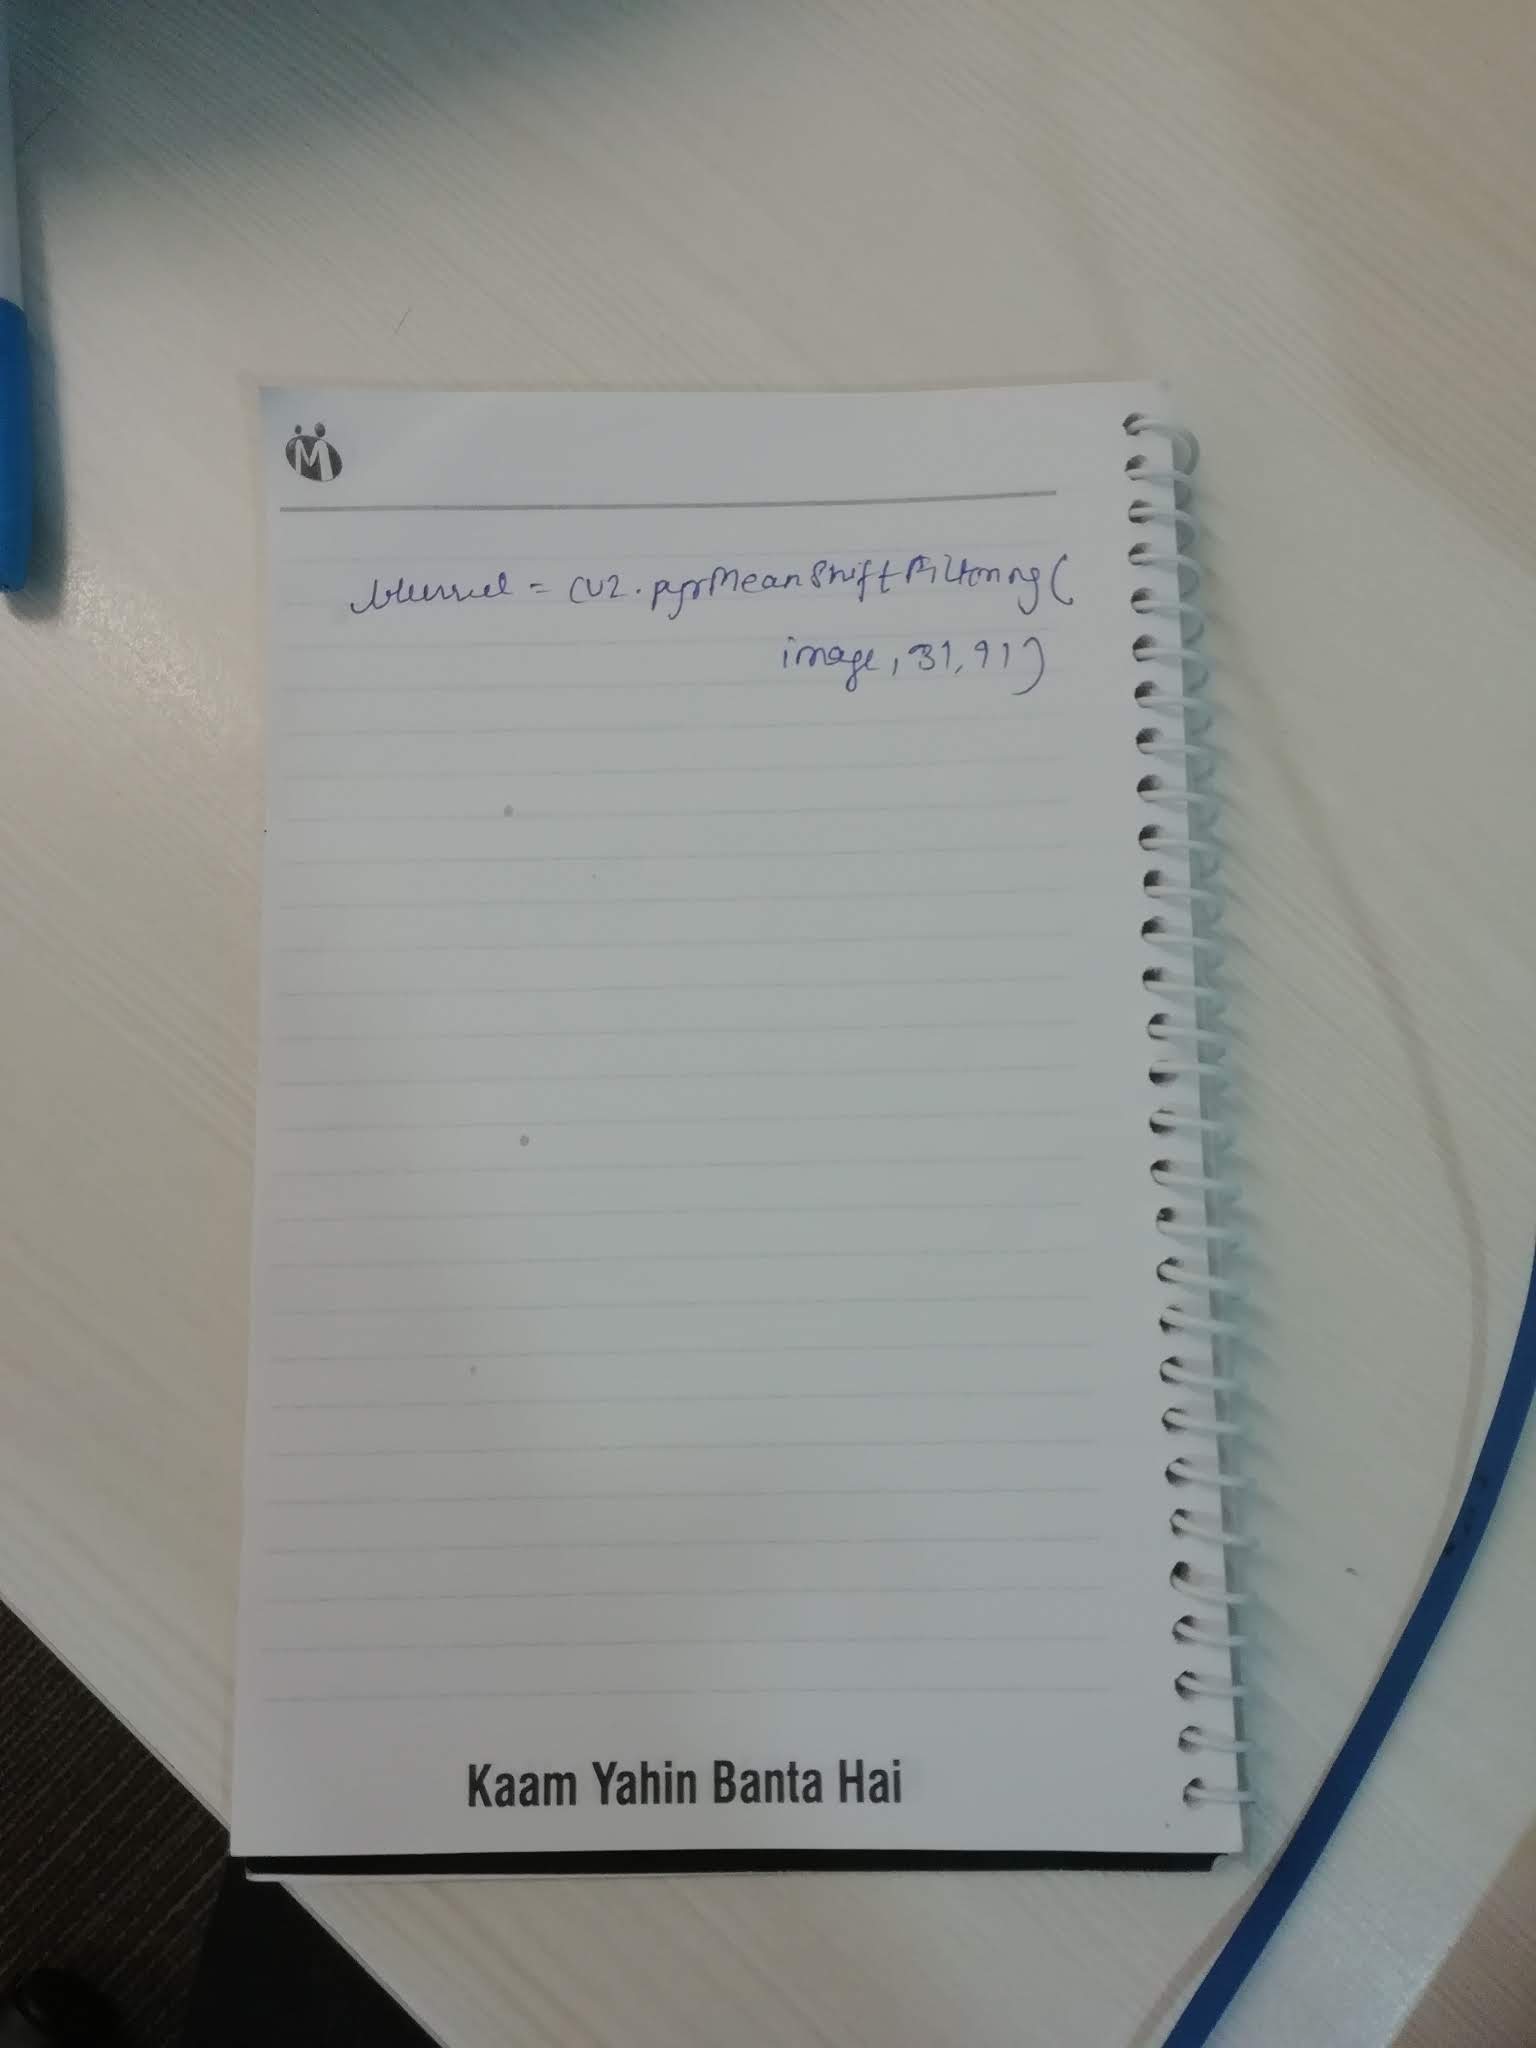 M
blurred = cv2.pyrMeanShiftFiltering(
image, 31, 91)
Kaam Yahin Banta Hai